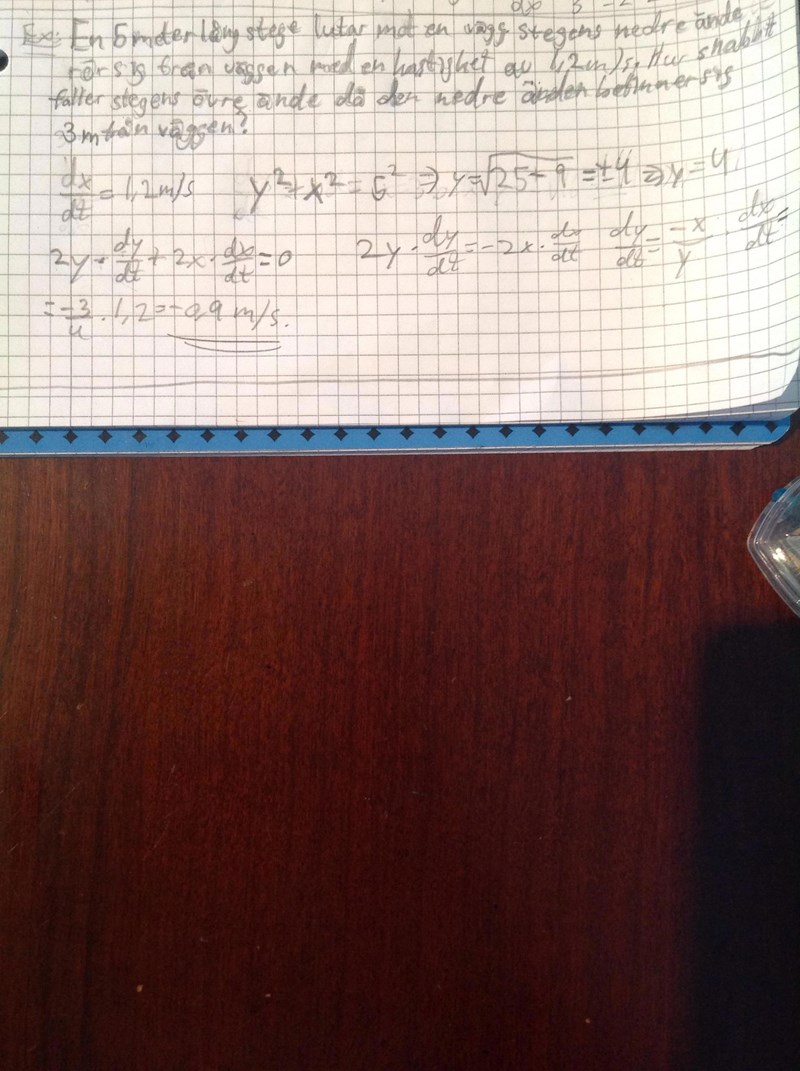 dx 3 -2
Ex: En 5 meter lång stege lutar mot en vägg stegens nedre ände
rör sig från väggen med en hastighet av 1,2 m/s. Hur snabbt
faller stegens övre ände då den nedre änden befinner sig
3 m från väggen?
dx/dt = 1,2 m/s y² + x² = 5² ⇒ y = √25-9 = ±4 ⇒ y = 4
2y · dy/dt + 2x · dx/dt = 0 2y · dy/dt = -2x · dx/dt dy/dt = -x/y · dx/dt =
= -3/4 · 1,2 = -0,9 m/s.